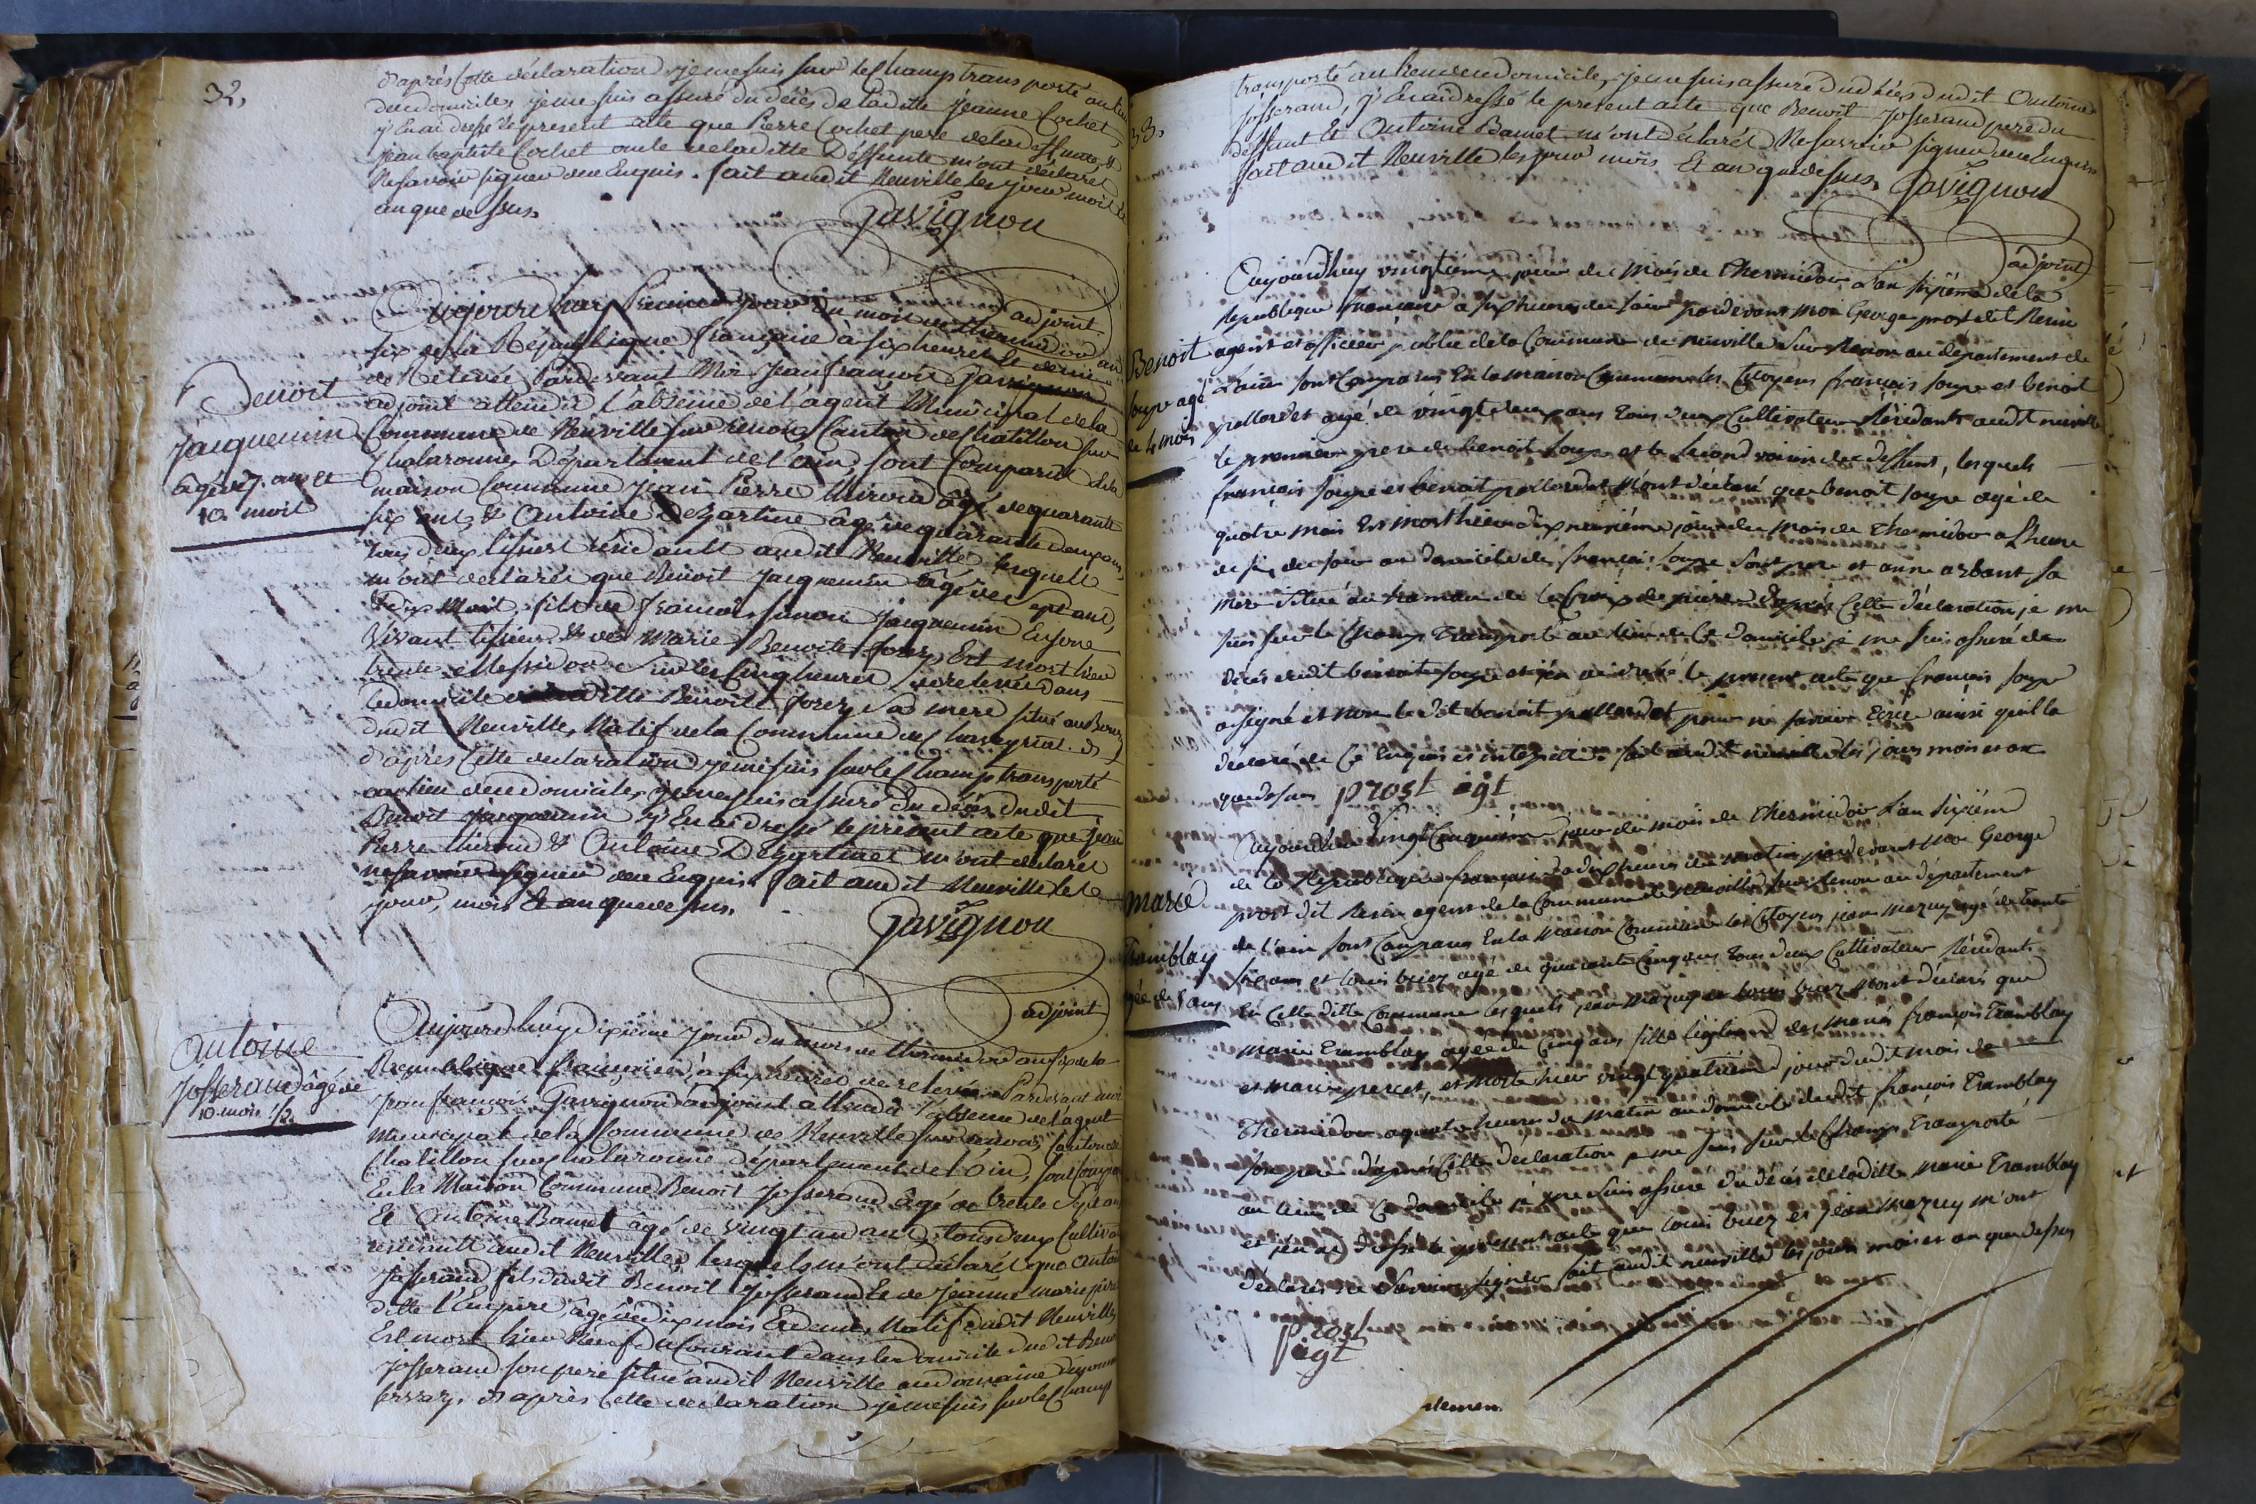 32,
d'après cette déclaration, je me suis sur le champ transporté au lieu
du domicile, je me suis assuré du décès de la ditte Jeanne Cochet,
j'en ai dressé le present acte que Pierre Cochet pere de la deffunte, et
jean baptiste Cochet oncle de la ditte Deffunte m'ont déclaré
Ne savoir signer de ce Enquis. fait audit Neuville les jour mois et
an que dessus.
Gavignon
adjoint
Benoit
Jacquemin
âgé de 7 ans et
10 mois
Aujourd'hui Premier jour du mois de thermidor an
six de la République française à six heures et demie
de Relevée Pardevant Moi Jean françois Gavignon
adjoint attendu l'absence de l'agent Municipal de la
Commune de Neuville sur renon Canton de Chatillon sur
Chalaronne, Département de l'ain, sont Comparus de la
maison Commune Jean Pierre âgé de quarante
six ans, & Antoine Dezartine âgé de quarante deux ans,
tous deux tisiers résidants audit Neuville lesquels
m'ont declarés que Benoit Jacquemin âgé de sept ans,
& dix Mois, fils de françois simon Jacquemin En son
Vivant tisier, & de Marie Benoite forez, Est mort hier
trente Messidor sur les Cinq heures de relevée dans
le domicile de la ditte Benoite forez, sa mere situé au Bourg
dudit Neuville, Natif de la Commune de Chaveyriat. &
d'après Cette declaration je me suis sur le Champ transporté
au lieu de ce domicile, je me suis assuré du décès dudit
Benoit Jacquemin j'En ai dressé le present acte que Jean
Pierre & Antoine Dezartine m'ont declarés
ne savoir signer de ce Enquis, fait audit Neuville le
jour, mois & an que dessus.
Gavignon
adjoint
Antoine
Josserand âgé de
10 mois 1/2
Aujourd'huy dixième jour du mois de thermidor an six de la
République française, à six heures de relevée Pardevant moi
jean françois Gavignon adjoint attendu l'absence de l'agent
Municipal de la Commune de Neuville sur renon, Canton de
Chatillon sur Chalaronne département de l'Ain, sont Comparus
En la Maison Commune Benoit Josserand âgé de trente sept ans
Et Antoine Bamet âgé de vingt un ans, tous deux Cultiva
residants audit Neuville, lesquels m'ont déclarés que Antoine
Josserand fils dudit Benoit Josserand & de Jeanne Marie
ditte l'Empire, âgé de dix mois Et demi, Natif dudit Neuville
Est mort hier Neuf du Courant dans le domicile dudit Benoit
Josserand son pere situé audit Neuville au domaine
ferray, d'après Cette declaration je me suis sur le Champ
33.
transporté au lieu de ce domicile, je me suis assuré du décès dudit Antoine
Josserand, j'En ai dressé le present acte que Benoit Josserand pere du
deffunt Et Antoine Bamet m'ont déclarés Ne savoir signer de ce Enquis.
fait audit Neuville les jour mois Et an que dessus.
Gavignon
adjoint
Benoit
soupe agé
de 4 mois
Aujourdhuy vingtieme jour du mois de Thermidor l'an sixième de la
Republique française a six heures du soir pardevant moi George prost dit Renin
agent et officier public de la Commune de neuville sur Renon au departement de
L'ain sont Comparus En la maison Commune les Citoyens françois soupe et benoit
pallordet agé de vingt deux ans tous deux Cultivateur Résidants audt neuville
le premier pere de benoit soupe et le second voisin du deffunt, lesquels
françois soupe et benoit pallordet m'ont déclaré que benoit soupe agé de
quatre mois Est mort hier dix neuvième jour du mois de Thermidor a Lheure
de six du soir au domicile de françois soupe son pere et anne arbant sa
mere situé au hameau de la Croix de pierre d'après Cette déclaration, je me
suis sur le Champ Transporté au lieu de Ce domicile je me suis assuré du
deces dudit benoit soupe et j'en ai dressé le present acte que françois soupe
a signé et non le dit benoit pallordet pour ne savoir écrire ainsi qu'il la
declaré de Ce Enquis et interpelé. fait audit neuville les jours mois et an
que dessus prost agt
marie
Tramblay
agée de 5 ans
Aujourdhui vingt Cinquième jour du mois de Thermidor L'an sixième
de la République française a dix heures du matin pardevant moi George
prost dit Renin agent de la Commune de neuville sur Renon au département
de l'ain sont Comparus En la Maison Commune les Citoyens jean mazuy agé de Trente
six ans et louis buiez agé de quarante Cinq ans tous deux Cultivateur Résidants
En Cette ditte Commune lesquels jean mazuy et louis buiez m'ont déclarés que
Marie Tramblay agée de Cinq ans fille légitime des mariés françois Tramblay
et marie percet, est morte hier vingt quatrième jour dudit mois de
Thermidor a quatre heures du matin au domicile dudit françois Tramblay
son pere d'après Cette declaration je me suis sur le Champ Transporté
au lieu de Ce domicile je me suis assuré du décès de laditte Marie Tramblay
et j'en ai dressé le present acte que louis buiez et jean mazuy m'ont
déclarés ne savoir signer fait audit neuville les jours mois et an que dessus
Prost
agt